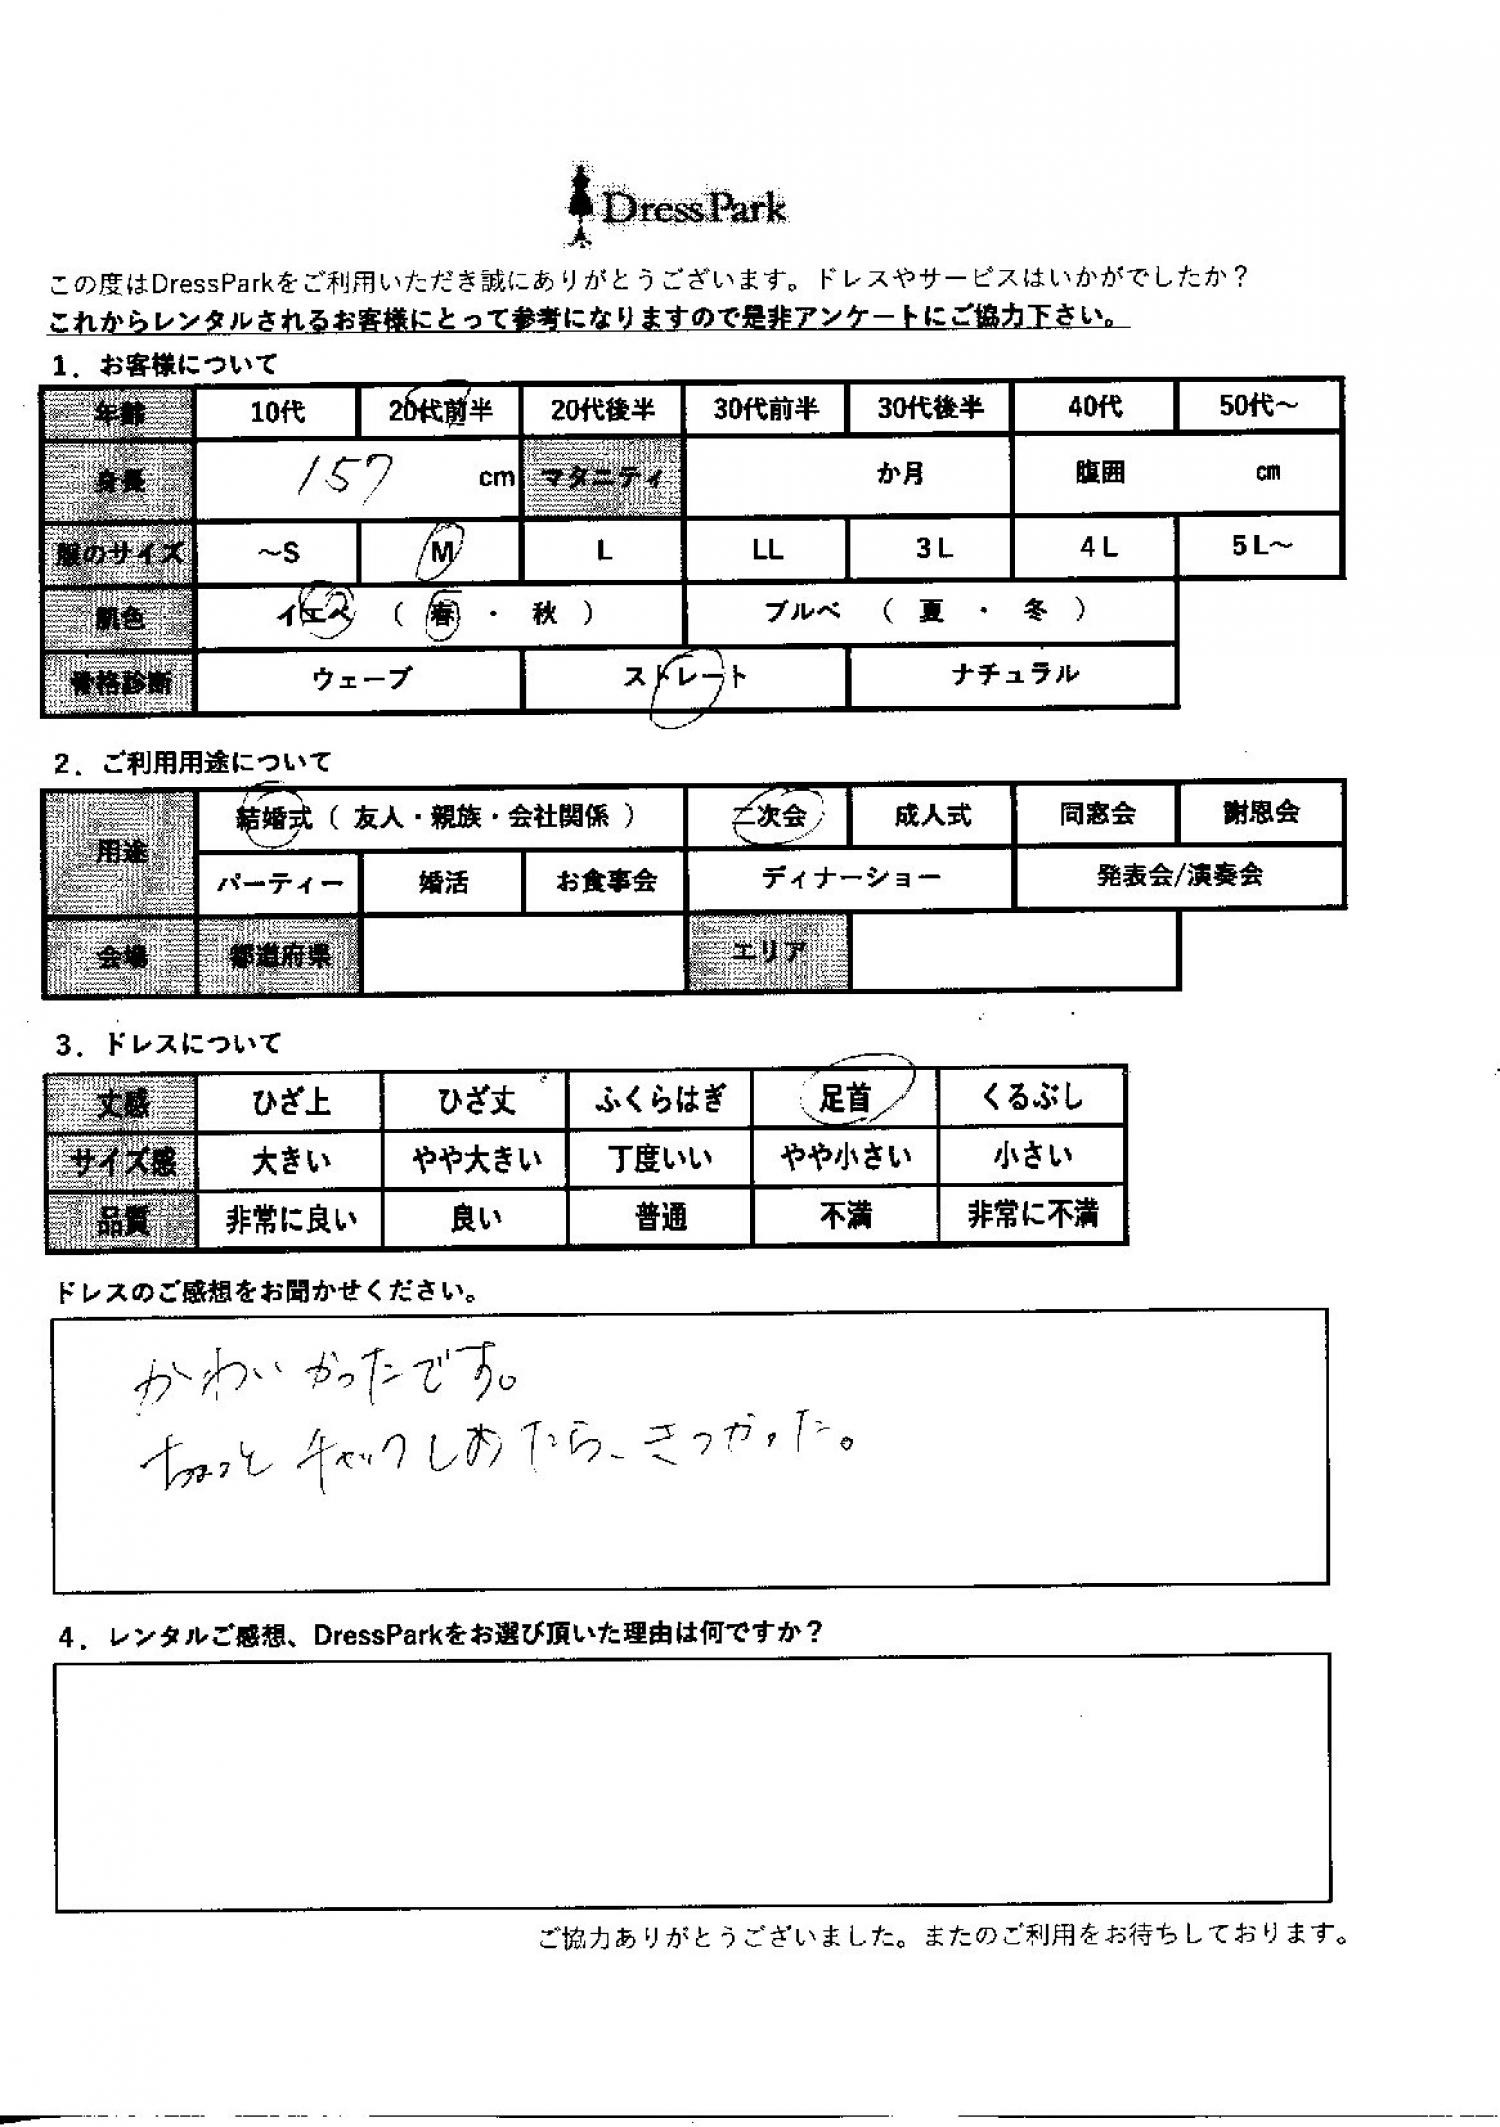 DressPark
この度はDressParkをご利用いただき誠にありがとうございます。ドレスやサービスはいかがでしたか？
これからレンタルされるお客様にとって参考になりますので是非アンケートにご協力下さい。
1．お客様について
年齢 10代 20代前半 20代後半 30代前半 30代後半 40代 50代～
身長 157 cm マタニティ か月 腹囲 cm
服のサイズ ～S M L LL 3L 4L 5L～
肌色 イエベ（ 春 ・ 秋 ） ブルベ （ 夏 ・ 冬 ）
骨格診断 ウェーブ ストレート ナチュラル
2．ご利用用途について
用途 結婚式（ 友人・親族・会社関係 ） 二次会 成人式 同窓会 謝恩会
パーティー 婚活 お食事会 ディナーショー 発表会/演奏会
会場 都道府県 エリア
3．ドレスについて
丈感 ひざ上 ひざ丈 ふくらはぎ 足首 くるぶし
サイズ感 大きい やや大きい 丁度いい やや小さい 小さい
品質 非常に良い 良い 普通 不満 非常に不満
ドレスのご感想をお聞かせください。
かわいかったです。
ちょっとチャックしめたら、きつかった。
4．レンタルご感想、DressParkをお選び頂いた理由は何ですか？
ご協力ありがとうございました。またのご利用をお待ちしております。